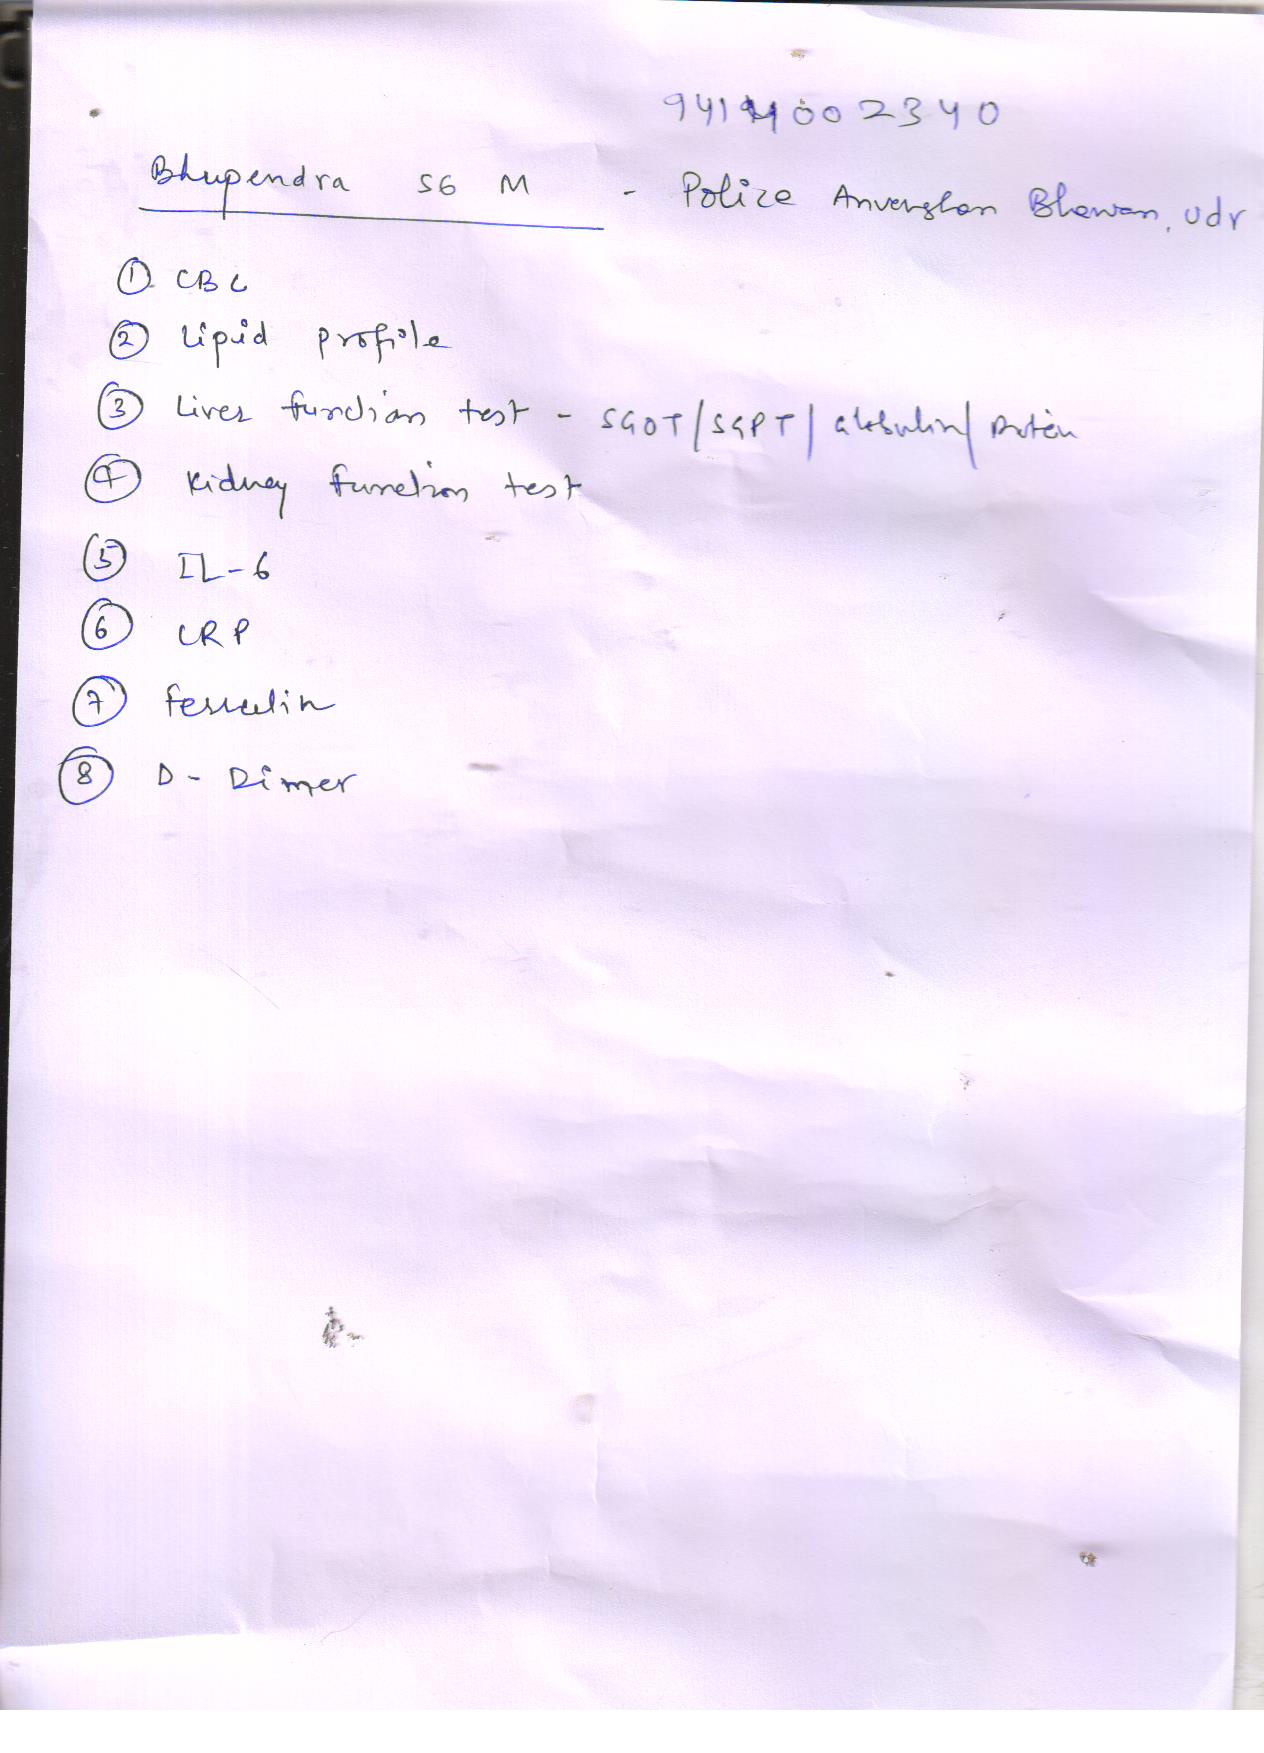 9414002340
Bhupendra 56 M - Police Anveshan Bhawan, Udr
① CBC
② Lipid profile
③ Liver function test - SGOT/SGPT/Globulin/Protein
④ Kidney function test
⑤ IL-6
⑥ CRP
⑦ Ferretin
⑧ D-Dimer